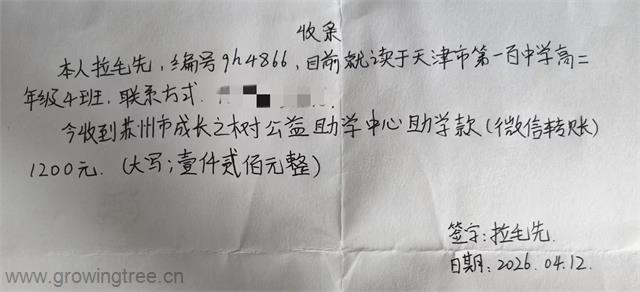 收条
本人拉毛先，编号gh4866，目前就读于天津市第一百中学高二
年级4班，联系方式.
今收到苏州市成长之树公益助学中心助学款(微信转账)
1200元.(大写;壹仟贰佰元整)
签字:拉毛先.
日期:2026.04.12.
www.growingtree.cn